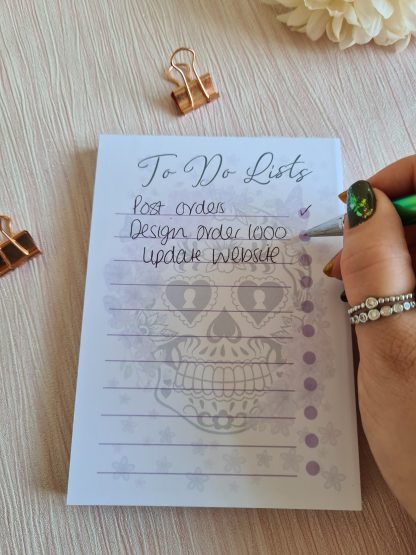 To Do Lists
Post orders ✓
Design order 1000
update website